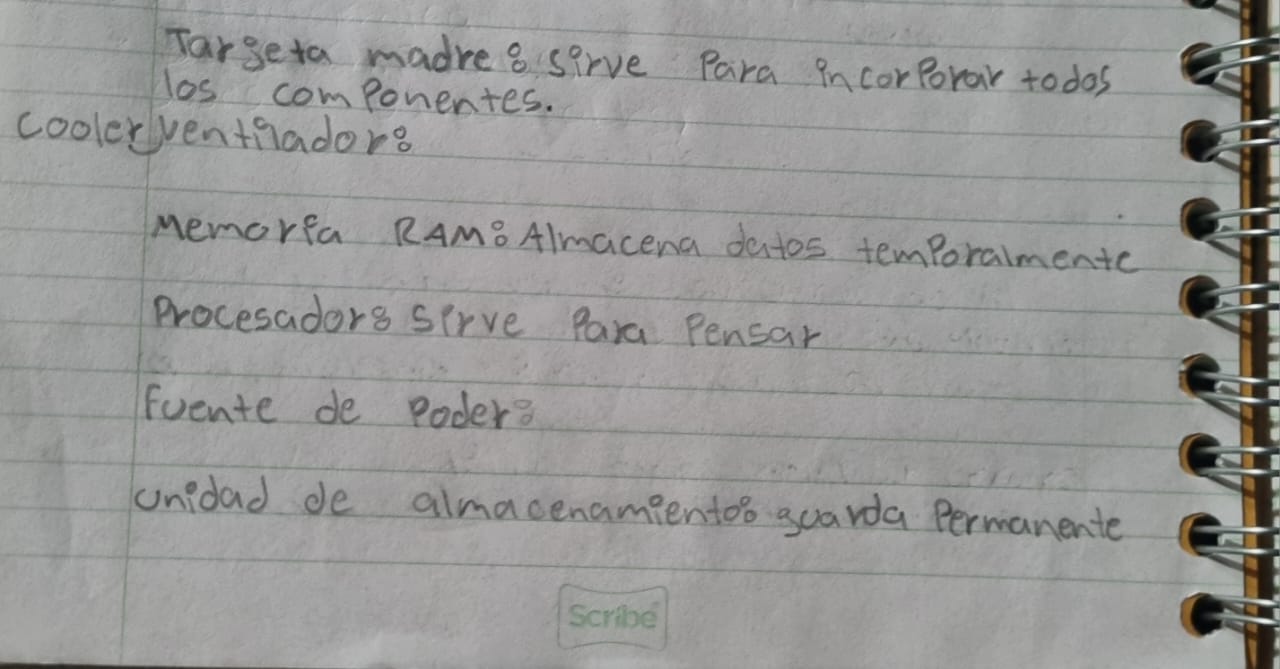 Targeta madre: sirve Para incorPorar todos
los comPonentes.
cooler/ventilador:
Memoria RAM: Almacena datos temPoralmente
Procesador: sirve Para Pensar
fuente de Poder:
unidad de almacenamiento: guarda Permanente
Scribe